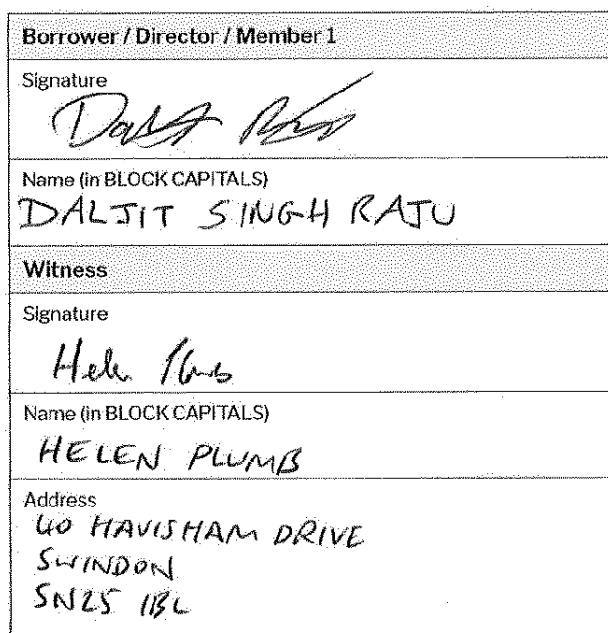 Borrower / Director / Member 1
Signature
Name (in BLOCK CAPITALS)
DALJIT SINGH RAJU
Witness
Signature
Helen
Name (in BLOCK CAPITALS)
HELEN PLUMB
Address
40 HAVISHAM DRIVE
SWINDON
SN25 1BL